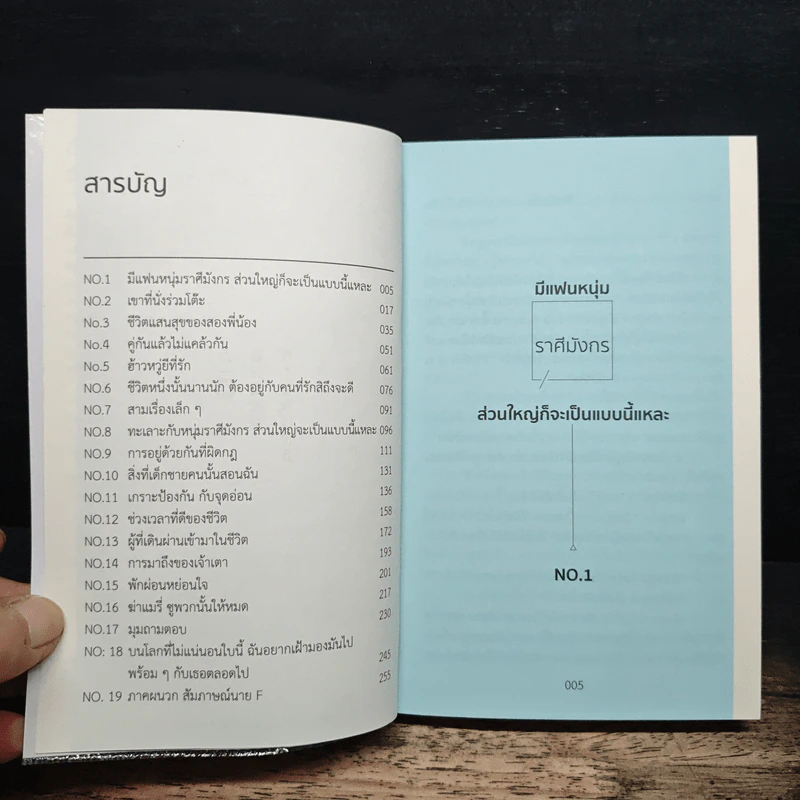 สารบัญ
NO.1 มีแฟนหนุ่มราศีมังกร ส่วนใหญ่ก็จะเป็นแบบนี้แหละ 005
NO.2 เขาที่นั่งร่วมโต๊ะ 017
No.3 ชีวิตแสนสุขของสองพี่น้อง 035
No.4 คู่กันแล้วไม่แคล้วกัน 051
No.5 ฮ้าวหวู่ยีที่รัก 061
NO.6 ชีวิตหนึ่งนั้นนานนัก ต้องอยู่กับคนที่รักสิถึงจะดี 076
NO.7 สามเรื่องเล็ก ๆ 091
NO.8 ทะเลาะกับหนุ่มราศีมังกร ส่วนใหญ่จะเป็นแบบนี้แหละ 096
NO.9 การอยู่ด้วยกันที่ผิดกฎ 111
NO.10 สิ่งที่เด็กชายคนนั้นสอนฉัน 131
NO.11 เกราะป้องกัน กับจุดอ่อน 136
NO.12 ช่วงเวลาที่ดีของชีวิต 158
NO.13 ผู้ที่เดินผ่านเข้ามาในชีวิต 172
NO.14 การมาถึงของเจ้าเตา 193
NO.15 พักผ่อนหย่อนใจ 201
NO.16 ฆ่าแมรี่ ซูพวกนั้นให้หมด 217
NO.17 มุมถามตอบ 230
NO: 18 บนโลกที่ไม่แน่นอนใบนี้ ฉันอยากเฝ้ามองมันไป
พร้อม ๆ กับเธอตลอดไป 245
NO. 19 ภาคผนวก สัมภาษณ์นาย F 255
มีแฟนหนุ่ม
ราศีมังกร
ส่วนใหญ่ก็จะเป็นแบบนี้แหละ
NO.1
005